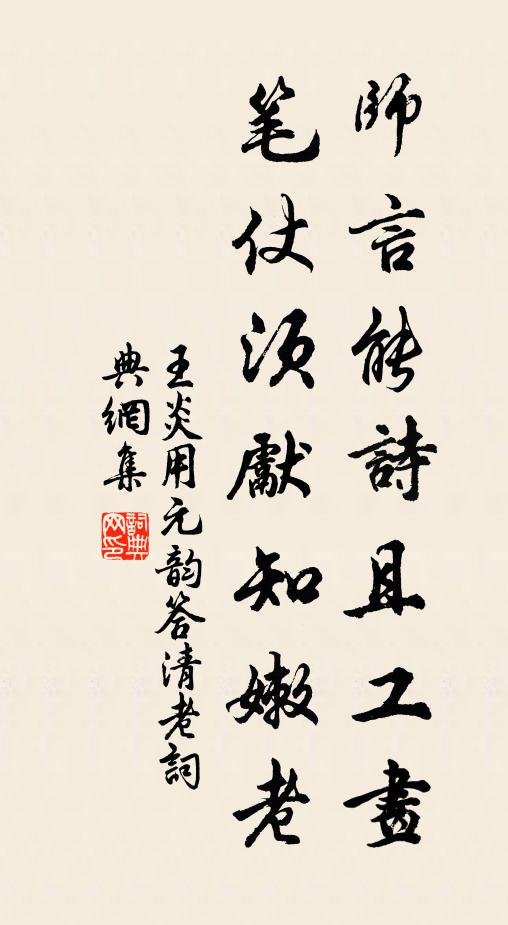 師言能詩且工畫
笔仗须獻知嫩老
王炎用元韵答清老詞
典網集
詞典网印